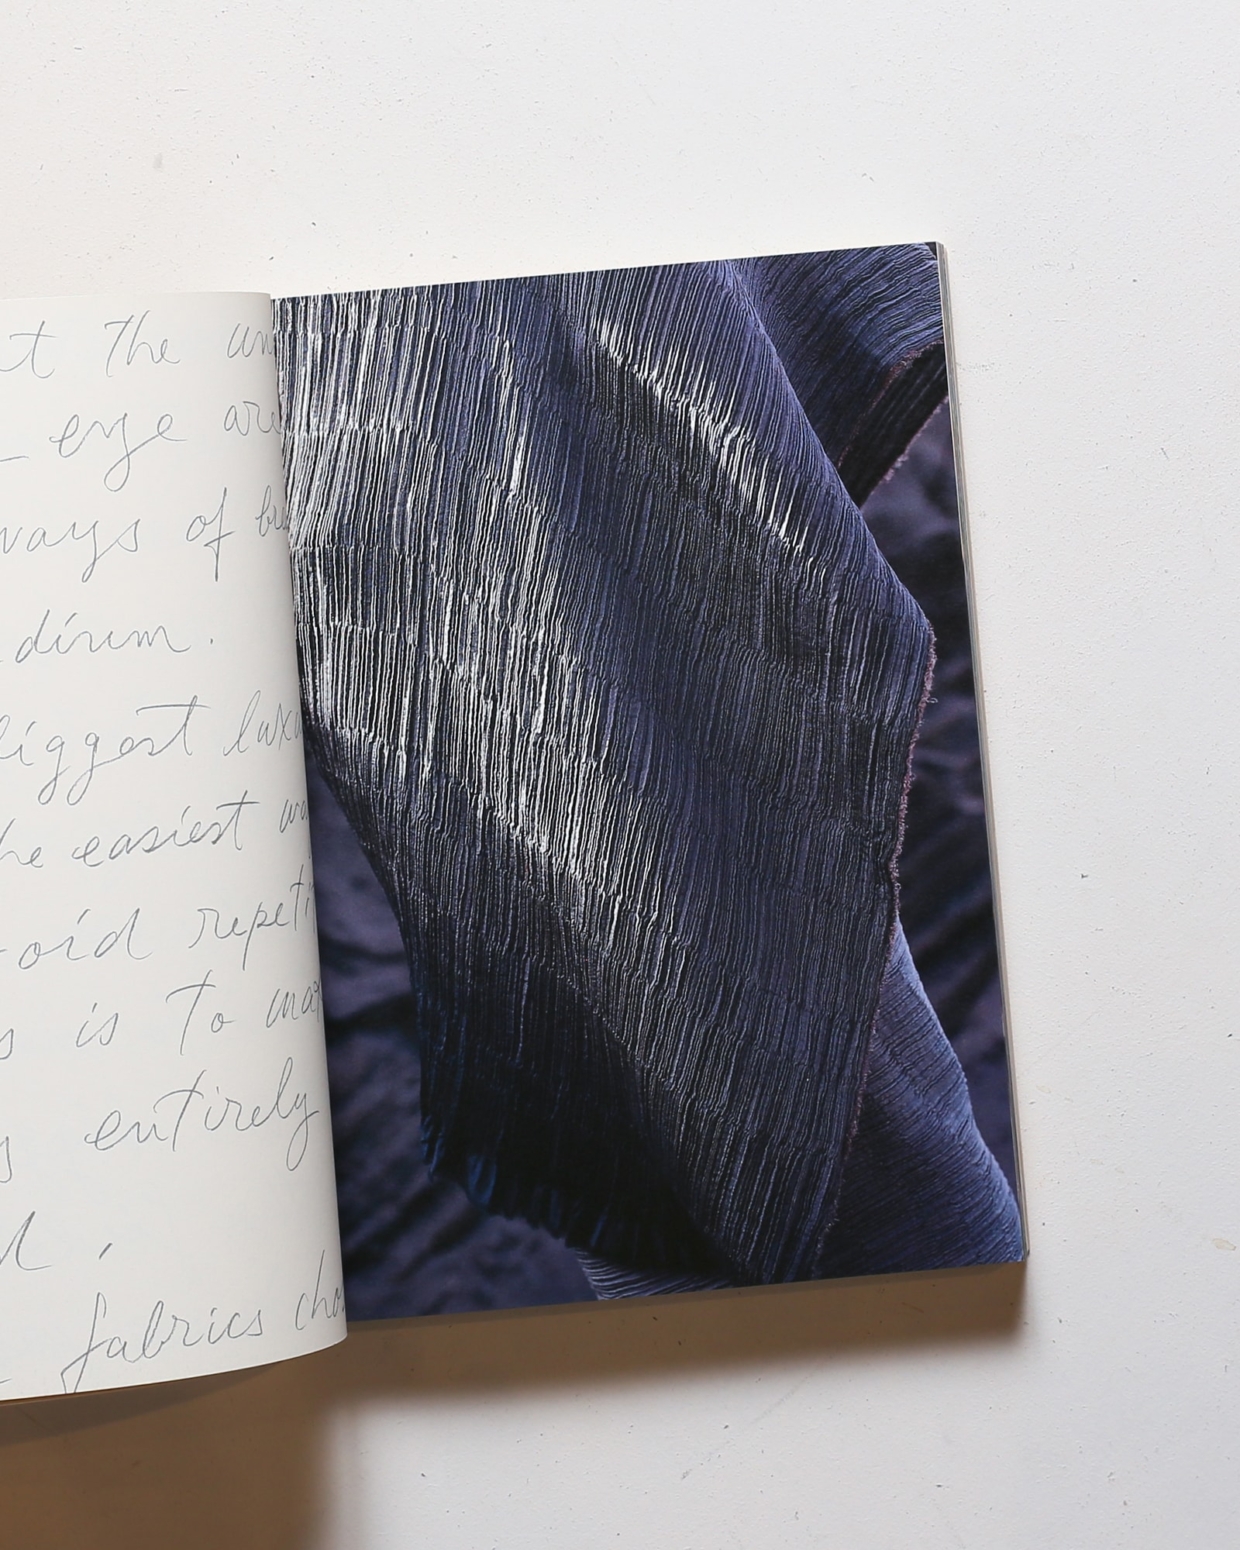 t The un
eye are
ways of
dirum.
biggest luxu
he easiest wa
oid repeti
s is To ma
s entirely
d,
fabrics cho